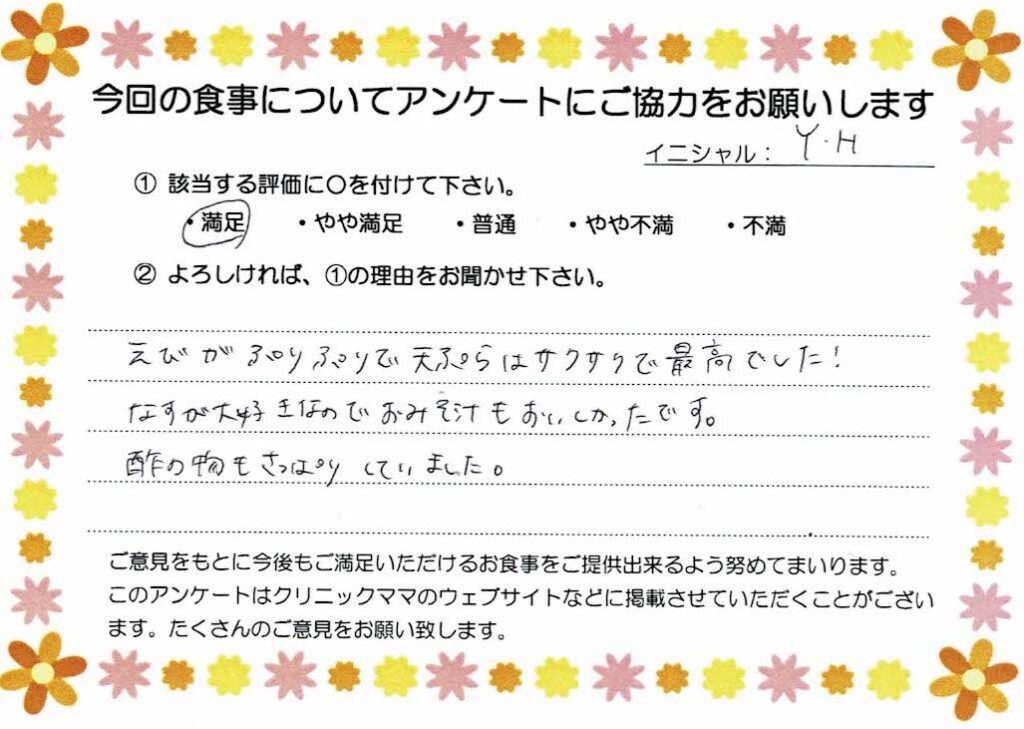 今回の食事についてアンケートにご協力をお願いします
イニシャル： Y.H
① 該当する評価に〇を付けて下さい。
・満足 ・やや満足 ・普通 ・やや不満 ・不満
② よろしければ、①の理由をお聞かせ下さい。
えびがぷりぷりで天ぷらはサクサクで最高でした!
なすが大好きなのでおみそ汁もおいしかったです。
酢の物もさっぱりしていました。
ご意見をもとに今後もご満足いただけるお食事をご提供出来るよう努めてまいります。
このアンケートはクリニックママのウェブサイトなどに掲載させていただくことがござい
ます。たくさんのご意見をお願い致します。